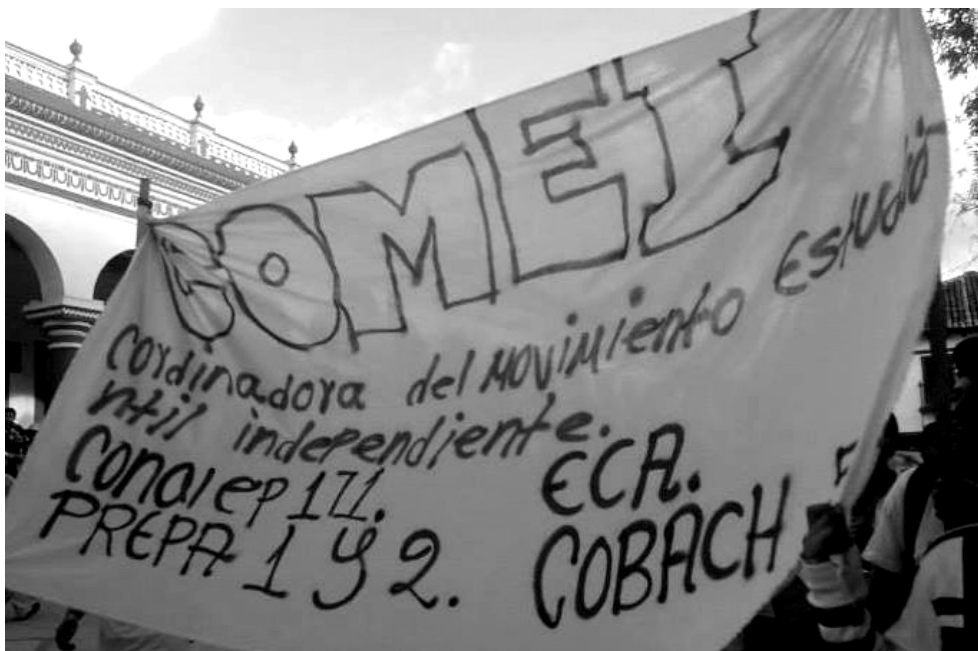 COMEI
Cordinadora del MOVIMIENTO ESTUDIA
ntil independiente.
Conalep 171. ECA.
PREPA 1 y 2. COBACH